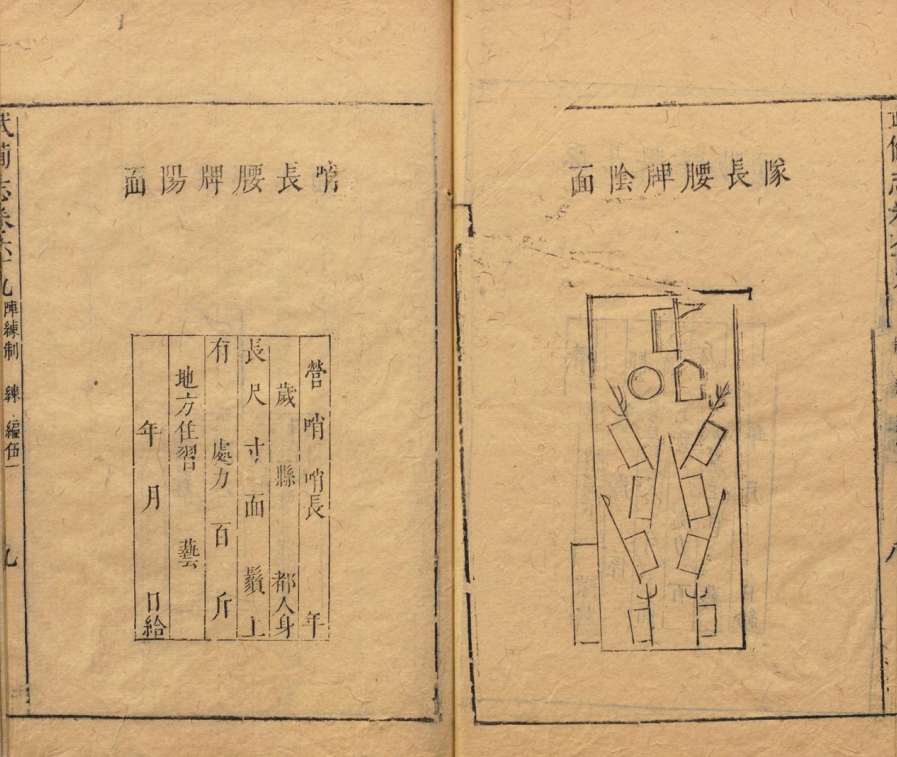 隊長腰牌陰面
哨長腰牌陽面
營 哨 哨長 年
歲 縣 都人身
長 尺 寸 面 鬚 上
有 處力 百 斤
地方住習 藝
年 月 日給
武備志卷六十九 陣練制 練 編伍一 九